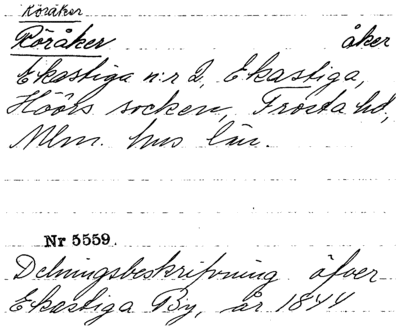 Röråker
Röråker åker
Ekastiga n:r 2, Ekastiga,
Höörs socken, Frosta hd,
Mlm. hus län.
Nr 5559.
Delningsbeskrifvning öfver
Ekastiga By, år 1844